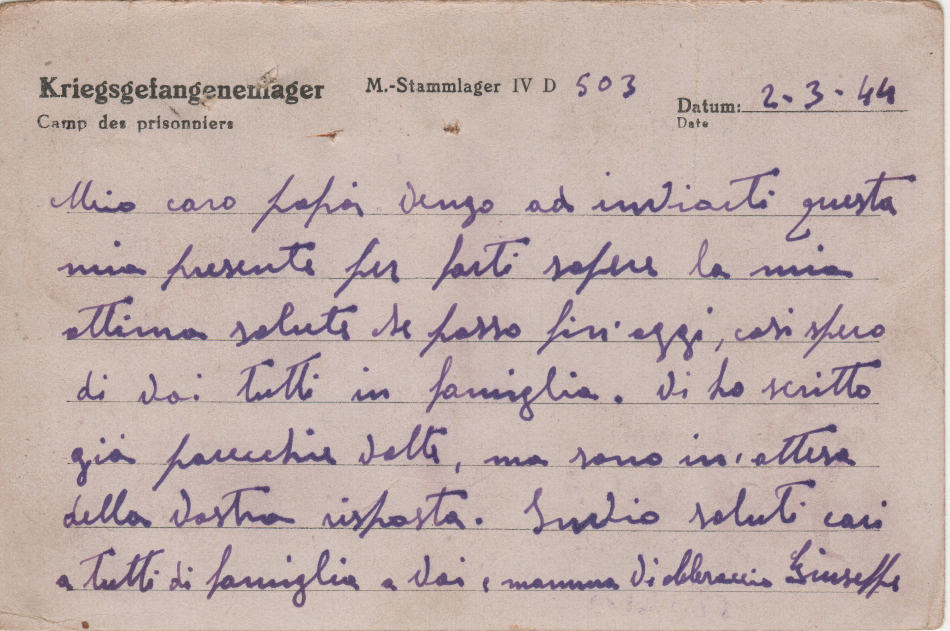 Kriegsgefangenenlager M.-Stammlager IV D 503 Datum: 2-3-44
Camp des prisonniers Date
Mio caro papà vengo ad inviarti questa
mia presente per farti sapere la mia
ottima salute che passo fin'oggi, così spero
di voi tutti in famiglia. Vi ho scritto
già parecchie volte, ma sono in'attesa
della vostra risposta. Invio saluti cari
a tutti di famiglia a voi e mamma Vi abbraccio Giuseppe